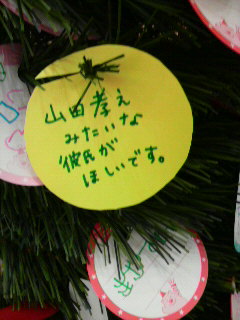 山田孝え
みたいな
彼氏が
ほしいです。